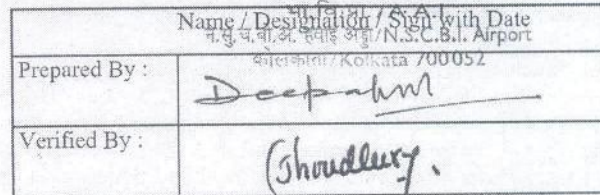 भा.वि.प्रा./A.A.I.
Name / Designation / Sign with Date
न.सु.च.बो.अ. हवाई अड्डा/N.S.C.B.I. Airport
कोलकाता/Kolkata 700052
Prepared By :
Verified By :
Choudhury.